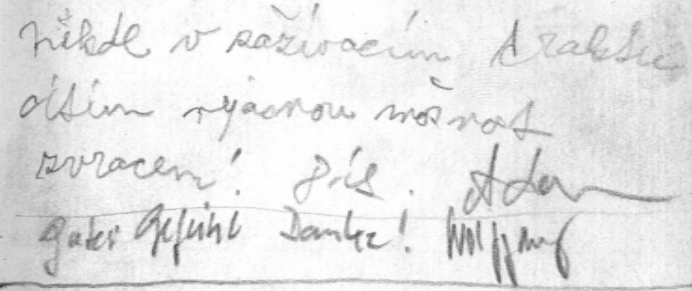 někde v zažívacím traktu
cítím výraznou možnost
zvracení!
gutes Gefühl Danke! Wolfgang